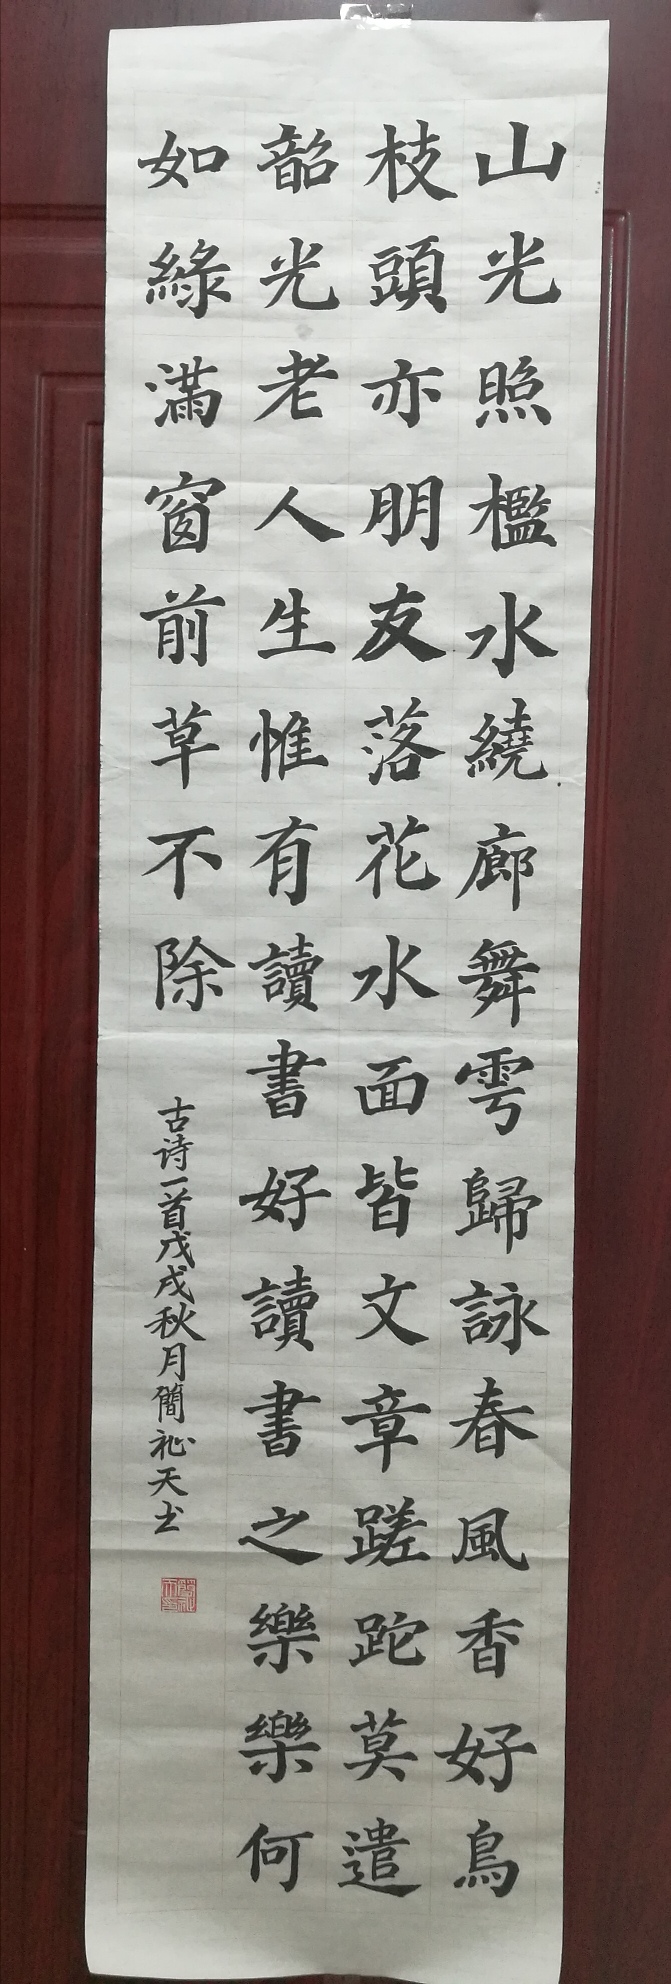 山光照檻水繞廊舞雩歸詠春風香好鳥
枝頭亦朋友落花水面皆文章蹉跎莫遣
韶光老人生惟有讀書好讀書之樂樂何
如綠滿窗前草不除
古诗一首戊戌秋月簡祉天书